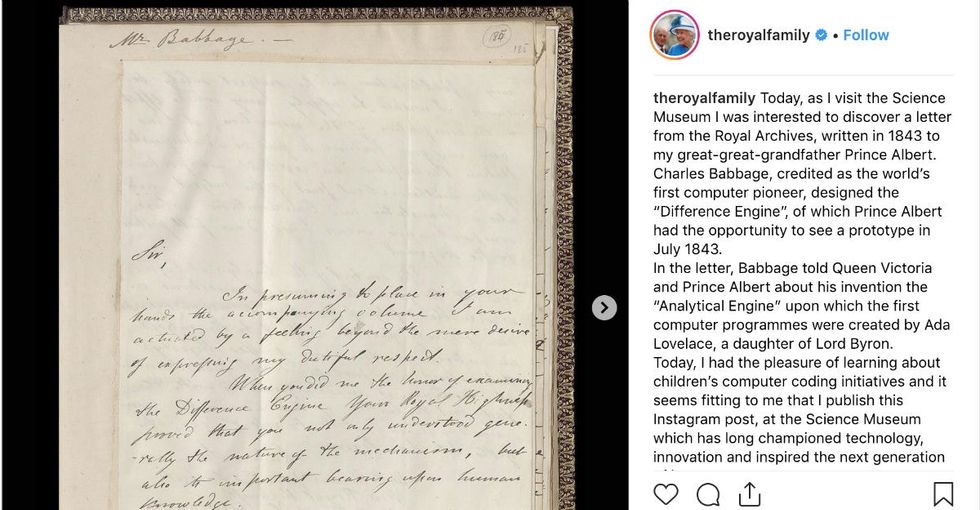 Mr. Babbage. —
185
185
Sir,
In presuming to place in your
hands the accompanying volume I am
actuated by a feeling beyond the mere desire
of expressing my dutiful respect.
When you did me the honor of examining
the Difference Engine Your Royal Highness
proved that you not only understood gene-
-rally the nature of the mechanism, but
also its important bearing upon human
knowledge.
theroyalfamily • Follow
theroyalfamily Today, as I visit the Science
Museum I was interested to discover a letter
from the Royal Archives, written in 1843 to
my great-great-grandfather Prince Albert.
Charles Babbage, credited as the world’s
first computer pioneer, designed the
“Difference Engine”, of which Prince Albert
had the opportunity to see a prototype in
July 1843.
In the letter, Babbage told Queen Victoria
and Prince Albert about his invention the
“Analytical Engine” upon which the first
computer programmes were created by Ada
Lovelace, a daughter of Lord Byron.
Today, I had the pleasure of learning about
children’s computer coding initiatives and it
seems fitting to me that I publish this
Instagram post, at the Science Museum
which has long championed technology,
innovation and inspired the next generation